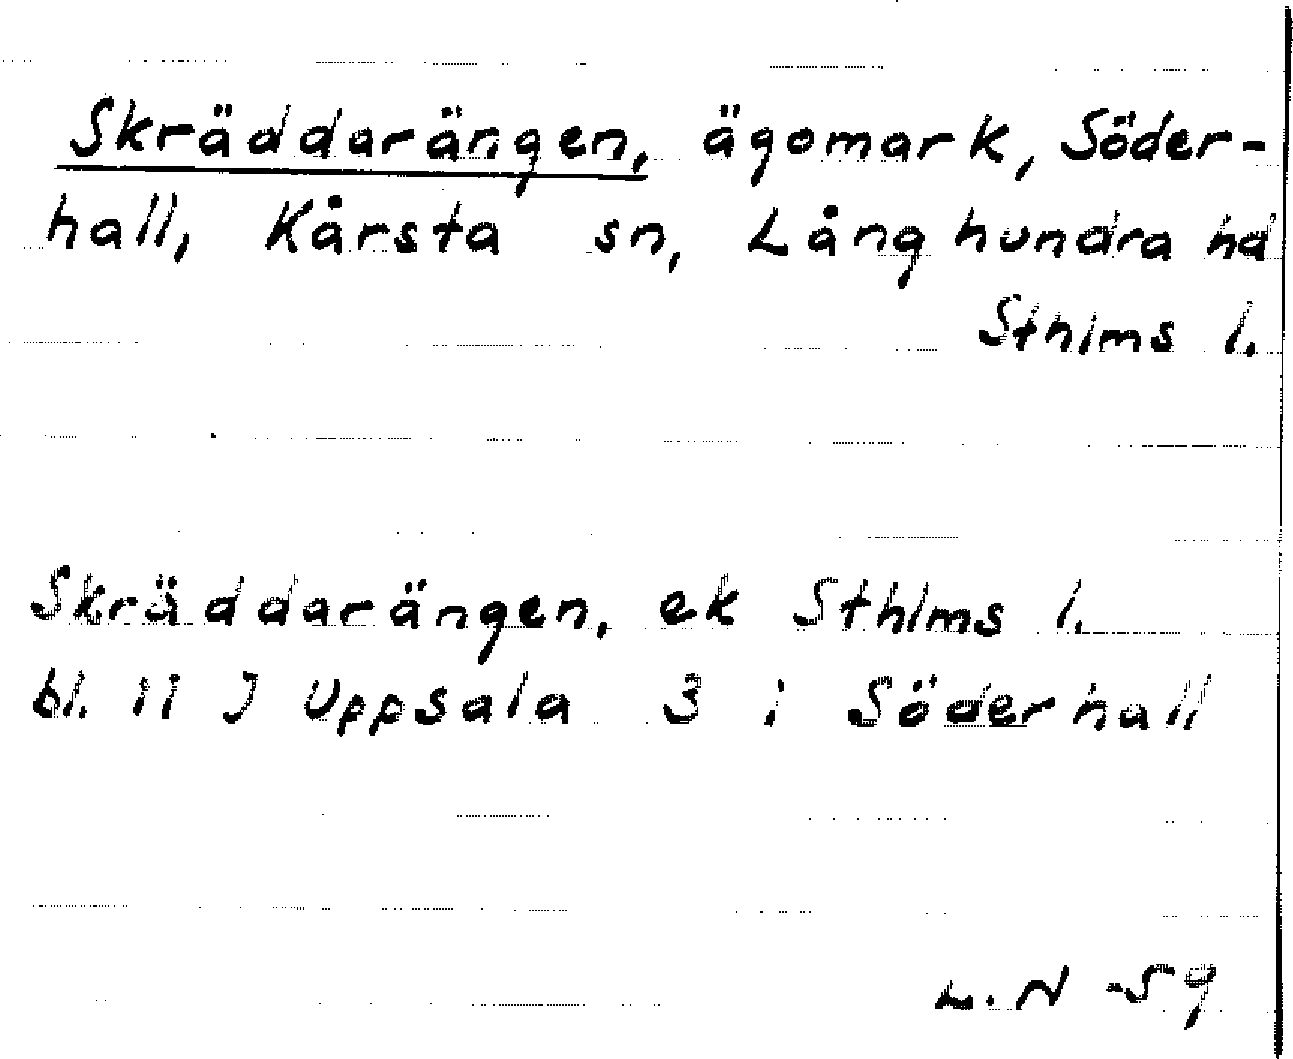 Skräddarängen, ägomark, Söder-
hall, Kårsta sn, Långhundra hd
Sthlms l.
Skräddarängen, ek Sthlms l.
bl. 11 J Uppsala 3 i Söderhall
L.N -59